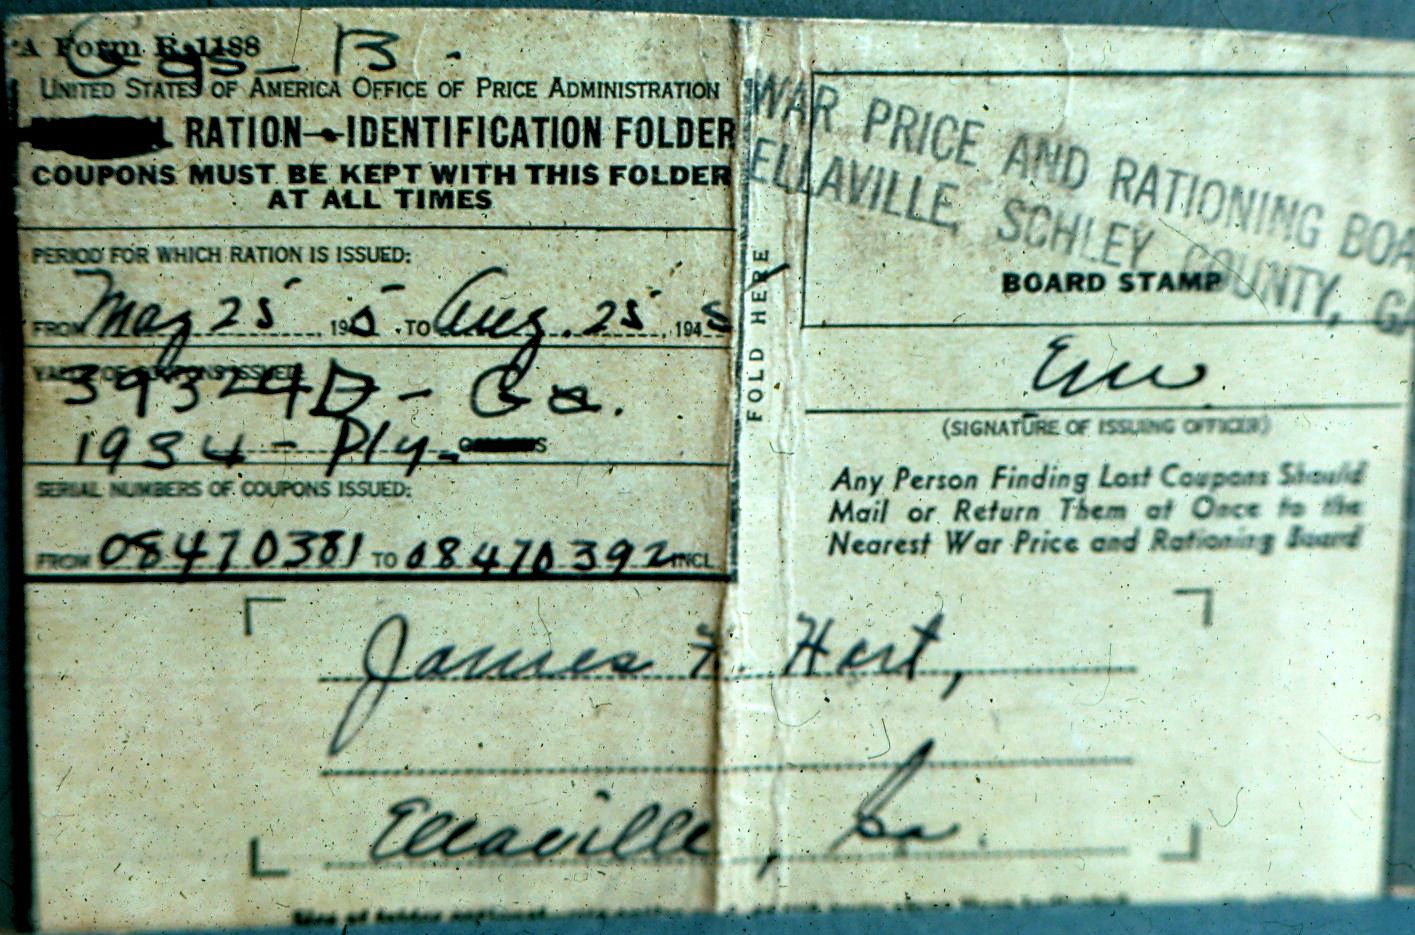 A Form R-1188
Gas - B
UNITED STATES OF AMERICA OFFICE OF PRICE ADMINISTRATION
RATION IDENTIFICATION FOLDER
COUPONS MUST BE KEPT WITH THIS FOLDER
AT ALL TIMES
PERIOD FOR WHICH RATION IS ISSUED:
FROM May 25 , 1945 . TO Aug. 25 , 1945
VALUE OF COUPONS ISSUED:
39324D - Ga.
1934 - Ply.
SERIAL NUMBERS OF COUPONS ISSUED:
FROM 08470381 TO 08470392 INCL
FOLD HERE
WAR PRICE AND RATIONING BOA
ELLAVILLE, SCHLEY COUNTY, GA
BOARD STAMP
(SIGNATURE OF ISSUING OFFICER)
Any Person Finding Lost Coupons Should
Mail or Return Them at Once to the
Nearest War Price and Rationing Board
James F. Hart,
Ellaville, Ga.